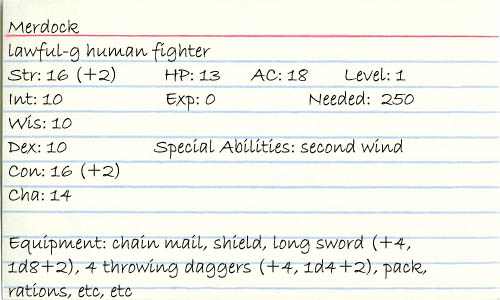 Merdock
lawful-g human fighter
Str: 16 (+2) HP: 13 AC: 18 Level: 1
Int: 10 Exp: 0 Needed: 250
Wis: 10
Dex: 10 Special Abilities: second wind
Con: 16 (+2)
Cha: 14
Equipment: chain mail, shield, long sword (+4,
1d8+2), 4 throwing daggers (+4, 1d4+2), pack,
rations, etc, etc